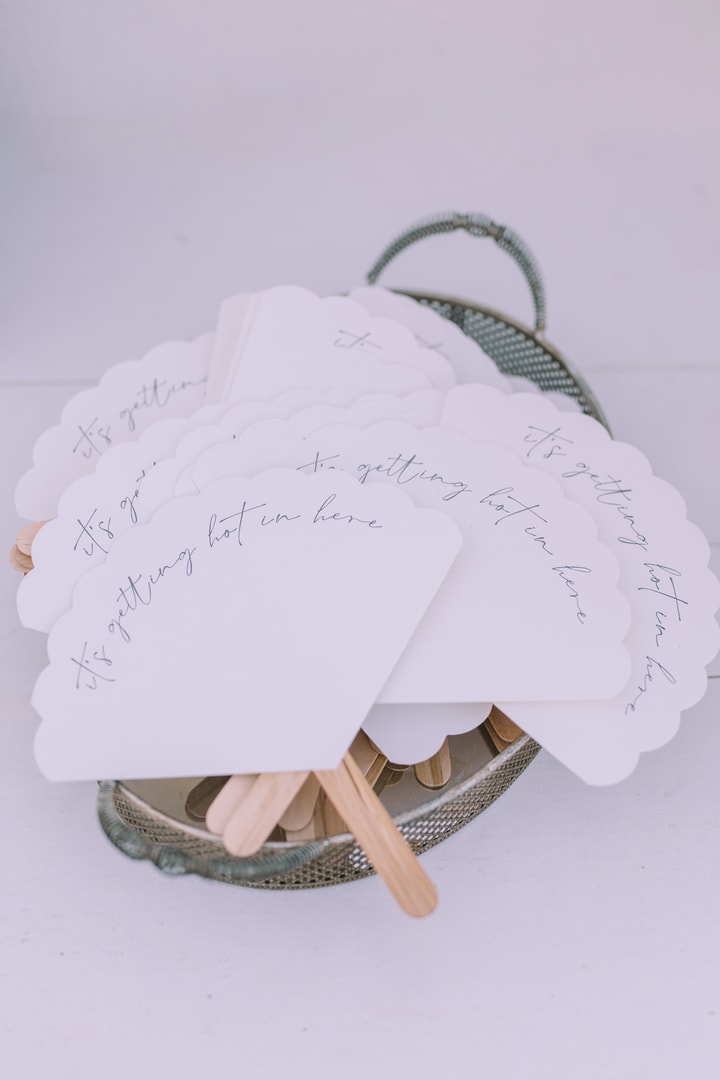 it's
it's getting
it's
it's getting hot in here
it's getting hot in here
it's getting hot in here